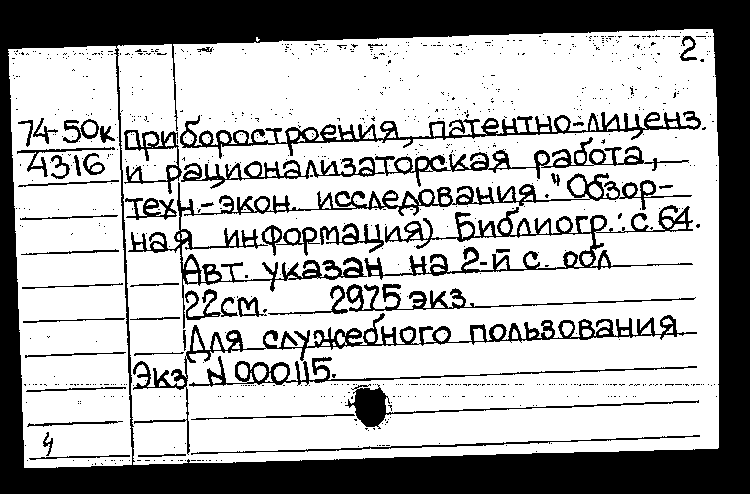 2.
74-50к приборостроения, патентно-лиценз.
4316 и рационализаторская работа,
техн.-экон. исследования." Обзор-
ная информация) Библиогр.: с. 64.
Авт. указан на 2-й с. обл
22см. 2975 экз.
Для служебного пользования
Экз. N 000115.
4